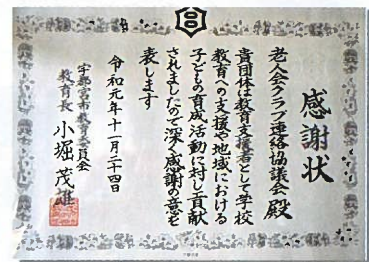 感謝状
老人会クラブ連絡協議会 殿
貴団体は教育支援者として学校
教育への支援や地域における
子どもの育成活動に対し貢献
されましたので深く感謝の意を
表します
令和元年十一月二十四日
宇都宮市教育委員会
教育長 小堀茂雄